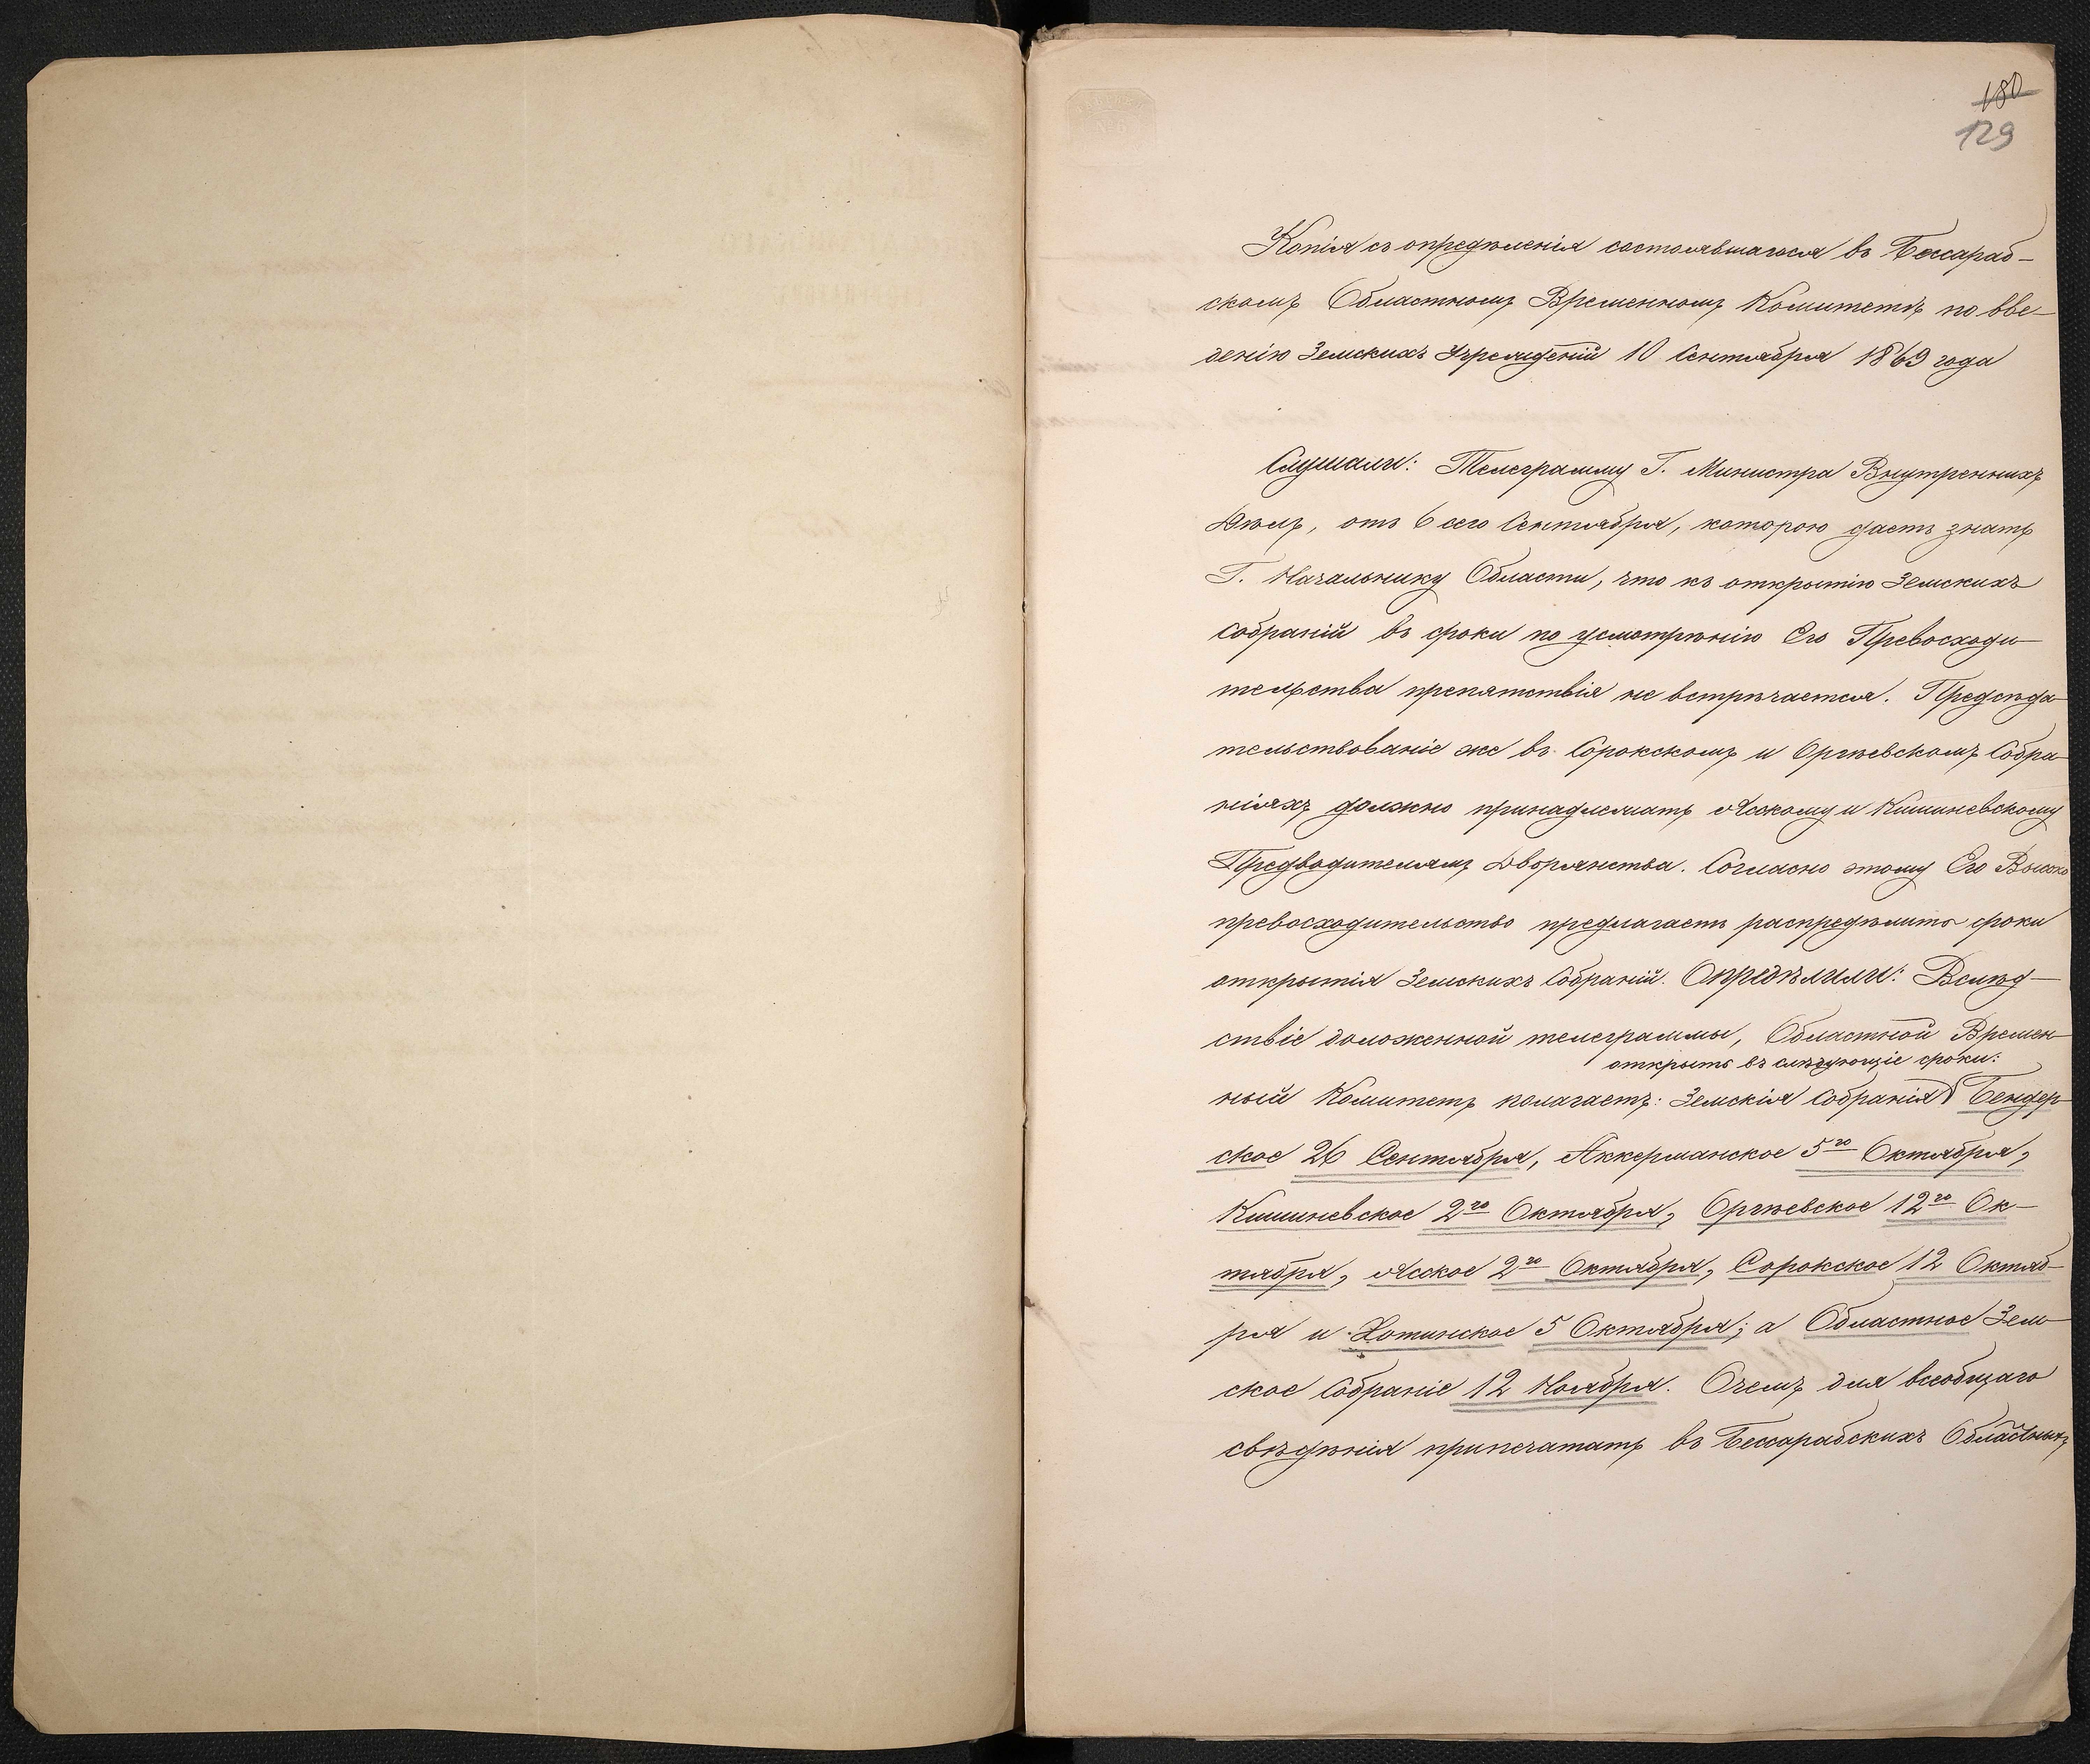 180
129
Копія съ опредѣленія состоявшагося въ Бессараб-
скомъ Областномъ Временномъ Комитетѣ по вве-
денію Земскихъ Учрежденій 10 Сентября 1869 года
Слушали: Телеграмму Г. Министра Внутреннихъ
Дѣлъ, отъ 6 сего Сентября, которою даетъ знать
Г. Начальнику Области, что къ открытію Земскихъ
собраній въ сроки по усмотрѣнію Его Превосходи-
тельства препятствія не встрѣчается. Предсѣда-
тельствованіе же въ Сорокскомъ и Оргѣевскомъ Собра-
ніяхъ должно принадлежать Ясскому и Кишиневскому
Предводителямъ Дворянства. Согласно этому Его Высоко
превосходительство предлагаетъ распредѣлить сроки
открытія Земскихъ Собраній. Опредѣлили: Вслѣд-
ствіе доложенной телеграммы, Областной Времен-
открыть въ слѣдующіе сроки:
ный Комитетъ полагаетъ: Земскія Собранія Бендер-
ское 26 Сентября, Аккерманское 5го Октября,
Кишиневское 2го Октября, Оргѣевское 12го Ок-
тября, Ясское 2го Октября, Сорокское 12 Октяб-
ря и Хотинское 5 Октября; а Областное Зем-
ское Собраніе 12 Ноября. О чемъ для всеобщаго
свѣдѣнія припечатать въ Бессарабскихъ Областныхъ